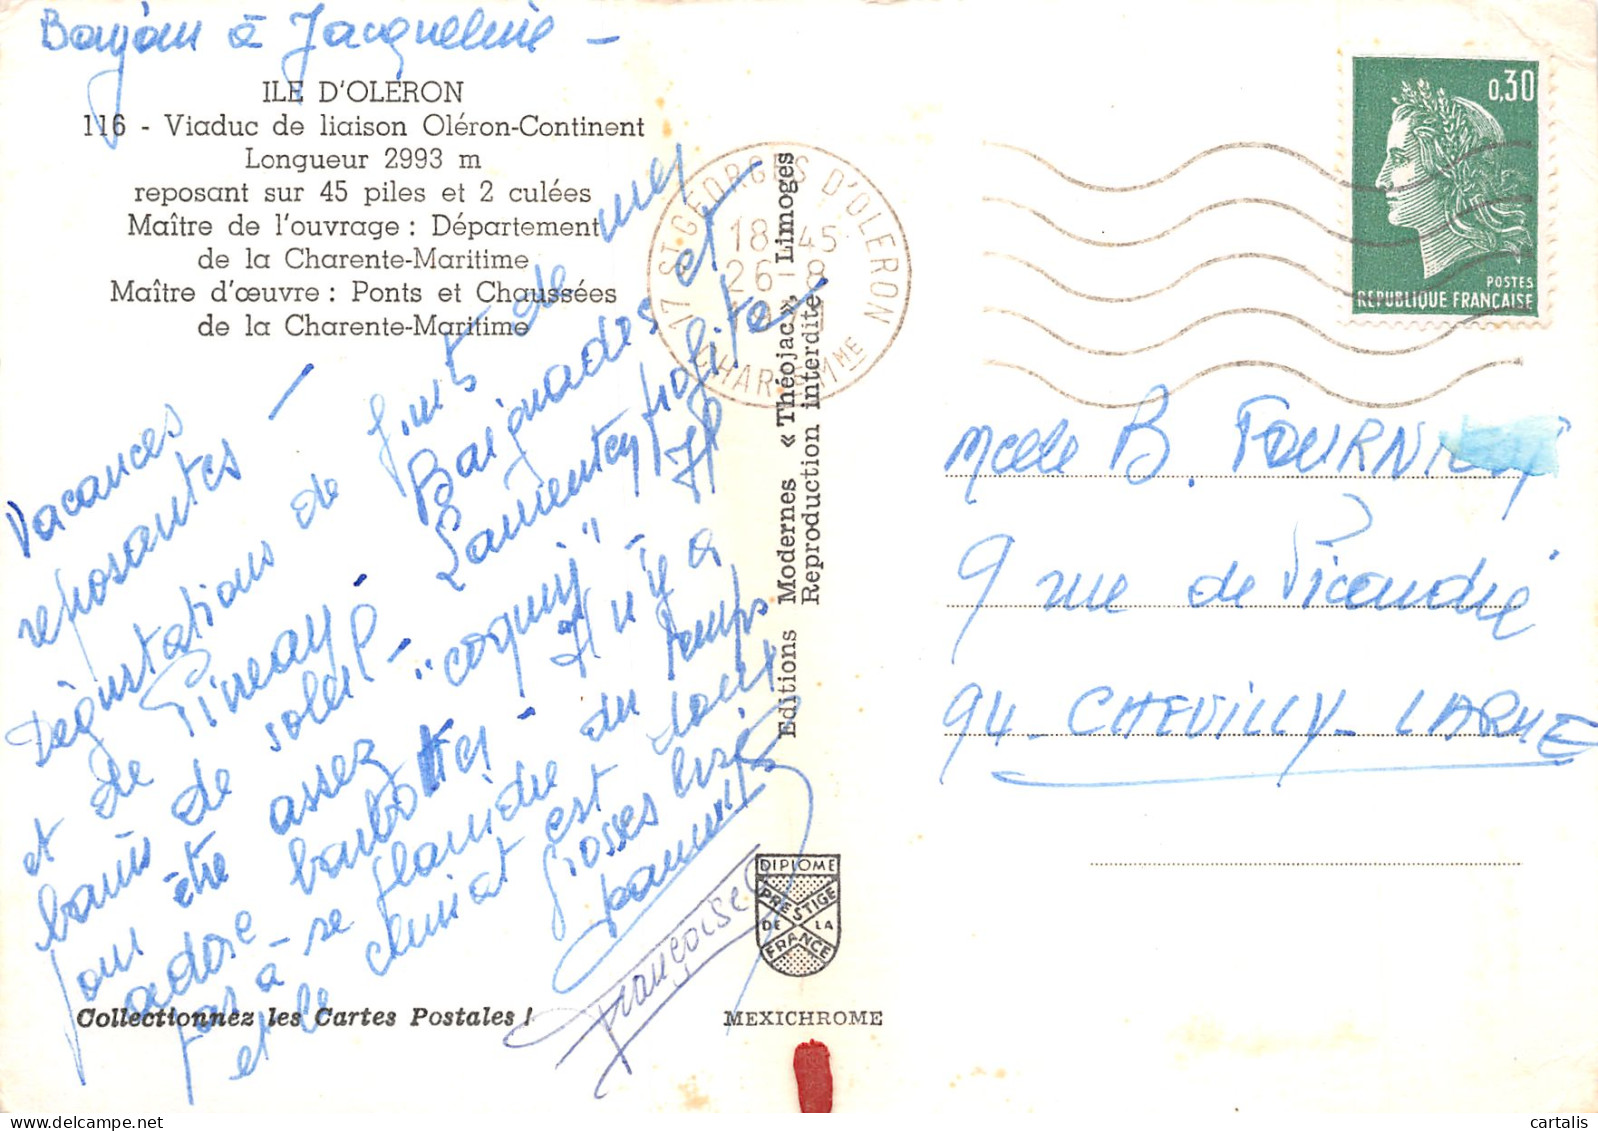 Bonjour à Jacqueline -
ILE D'OLÉRON
116 - Viaduc de liaison Oléron-Continent
Longueur 2993 m
reposant sur 45 piles et 2 culées
Maître de l'ouvrage : Département
de la Charente-Maritime
Maître d'œuvre : Ponts et Chaussées
de la Charente-Maritime
Vacances
reposantes -
Dégustations de fruits de mer
et de Pineau - Baignades et
bains de soleil - Laurent profite
jour être assez "coquin" - Il
adore barboter - Il n'y a
pas à se plaindre du temps
et le climat est doux
Grosses bises
Françoise
Collectionnez les Cartes Postales !
17 ST GEORGES D'OLERON
18-45
26-8
CHAR-
MME
Editions Modernes « Théojac », Limoges
Reproduction interdite
DIPLOME
PRESTIGE
DE LA
FRANCE
MEXICHROME
0,30
POSTES
REPUBLIQUE FRANÇAISE
Melle B.
9 rue de Picardie
94 - CHEVILLY - LARUE
cartalis